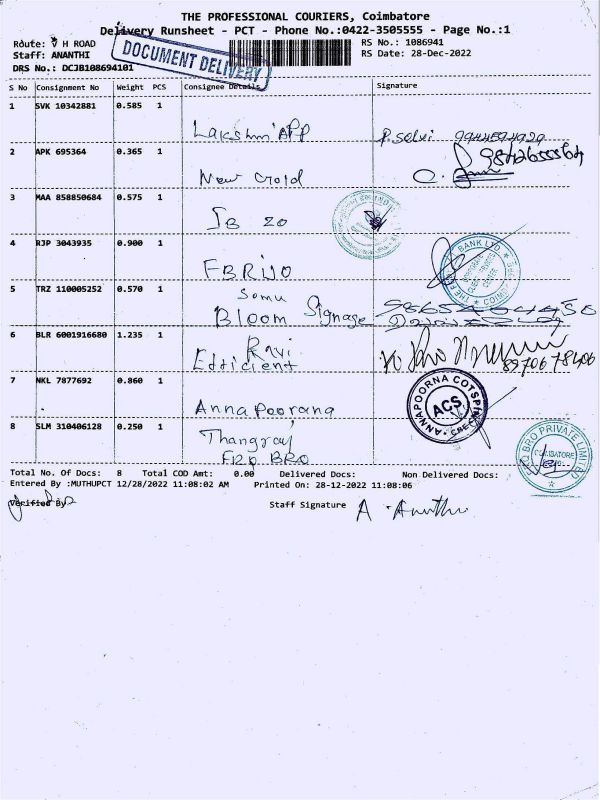 THE PROFESSIONAL COURIERS, Coimbatore
Delivery Runsheet - PCT - Phone No.:0422-3505555 - Page No.:1
Route: V H ROAD
RS No.: 1086941
Staff: ANANTHI
RS Date: 28-Dec-2022
DRS No.: DCJB108694101
DOCUMENT DELIVERY
S No Consignment No Weight PCS Consignee Details Signature
1 SVK 10342881 0.585 1
Lakshmi App P. Selvi
2 APK 695364 0.365 1
9842655564
New Gold
3 MAA 858850684 0.575 1
JB 20
4 RJP 3043935 0.900 1
BANK LTD.
FBRIJO
5 TRZ 110005252 0.570 1
Somu
Bloom Signage
6 BLR 6001916680 1.235 1
Ravi
Efficient
8970678406
7 NKL 7877692 0.860 1
ANNAPOORNA COTSPIN
ACS
Anna Poorana
8 SLM 310406128 0.250 1
Thangraj
FRQ BRO
BRO PRIVATE LIMITED
COIMBATORE
Total No. Of Docs: 8 Total COD Amt: 0.00 Delivered Docs: Non Delivered Docs:
Entered By :MUTHUPCT 12/28/2022 11:08:02 AM Printed On: 28-12-2022 11:08:06
Verified By
Staff Signature A. Ananthi